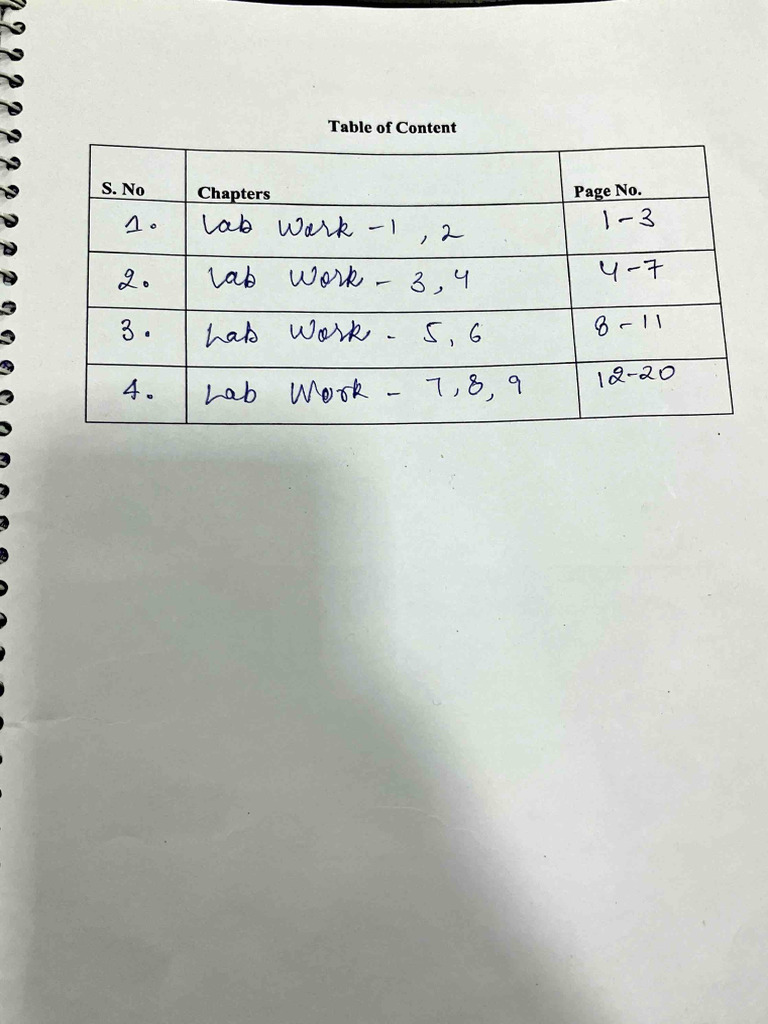 Table of Content
S. No Chapters Page No.
1. Lab Work - 1, 2 1-3
2. Lab Work - 3, 4 4-7
3. Lab Work - 5, 6 8-11
4. Lab Work - 7, 8, 9 12-20